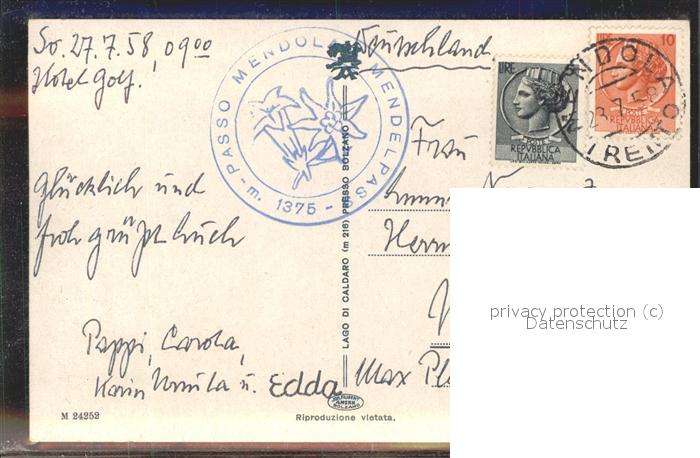 So. 27.7.58, 0900
Hotel Golf.
Deutschland
PASSO MENDOLA MENDELPASS
- m. 1375 -
LIRE
POSTE
REPUBBLICA
ITALIANA
10
REPUBBLICA
ITALIANA
MENDOLA
TRENTO
Frau
Glücklich und
froh grüßt Euch
Herrn
Pappi, Carola,
Karin, Ursula u. Edda
Max
LAGO DI CALDARO (m 216) PRESSO BOLZANO
M 24252
Riproduzione vietata.
BOLZANO
privacy protection (c)
Datenschutz